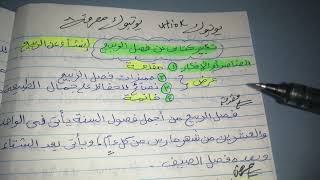 يوتيوك utiok يوتيوك
تعبير كتابي عن فصل الربيع (إنشاء عن الربيع)
العناصر أو الأفكار ① مقدمة
عرض ② مميزات فصل الربيع
③ نصائح للحفاظ على جمال الطبيعة
④ خاتمة
مقدمة
فصل الربيع من أجمل فصول السنة يأتي في الواحد
والعشرين من شهر مارس من كل عام، ويأتي بعد الشتاء
وبعده فصل الصيف